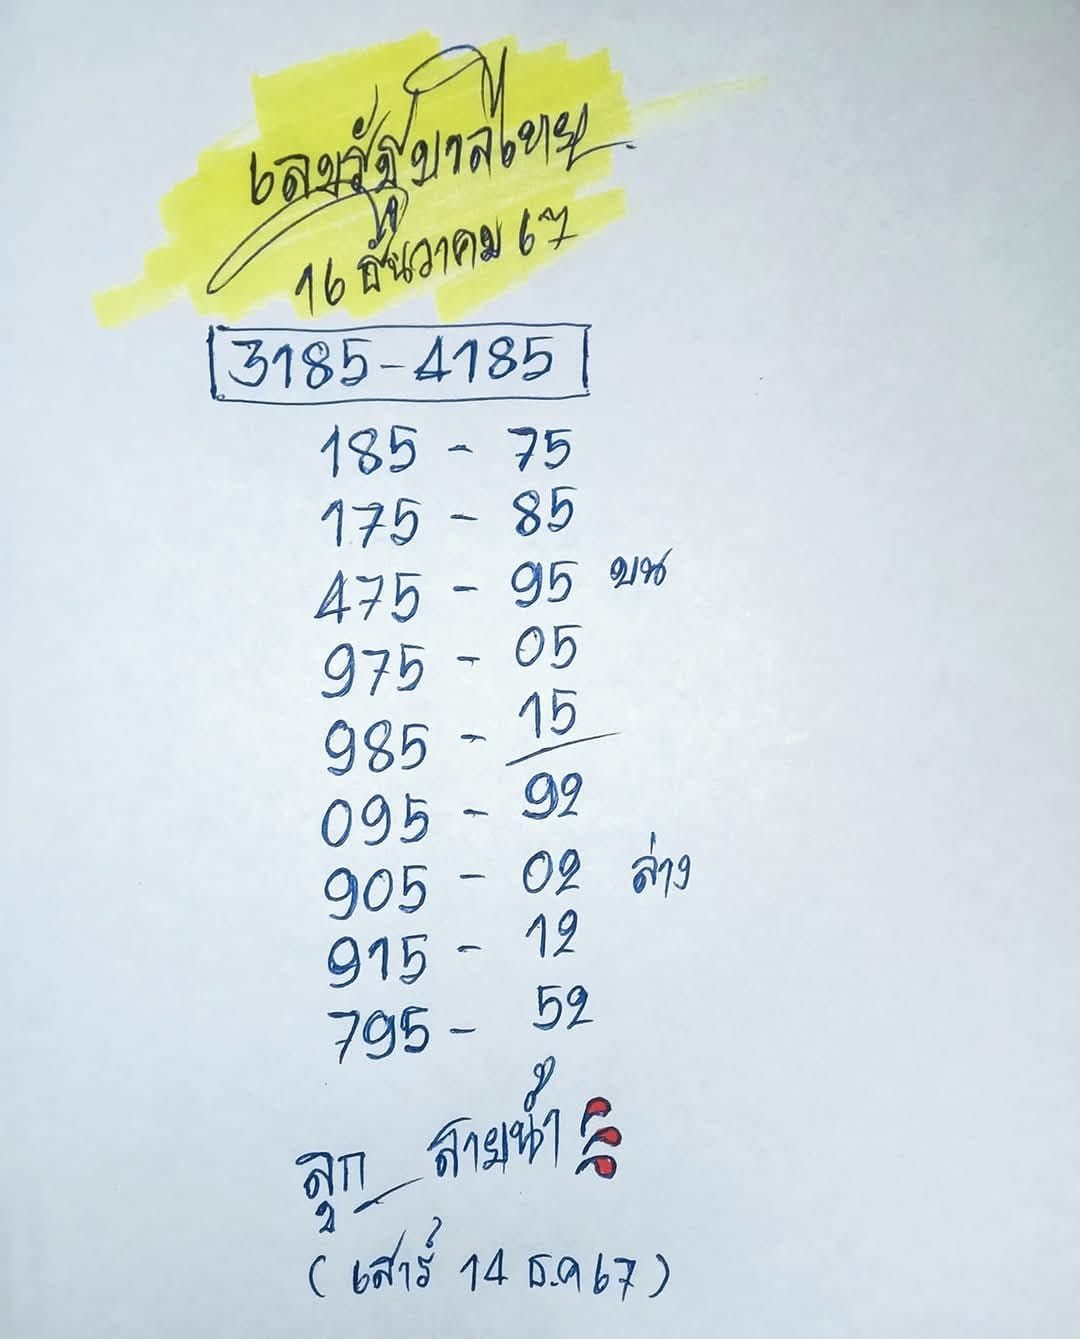 เลขรัฐบาลไทย
16 ธันวาคม 67
3185-4185
185 - 75
175 - 85
475 - 95 บน
975 - 05
985 - 15
095 - 92
905 - 02 ล่าง
915 - 12
795 - 52
ลูก สายน้ำ
(เสาร์ 14 ธ.ค 67)